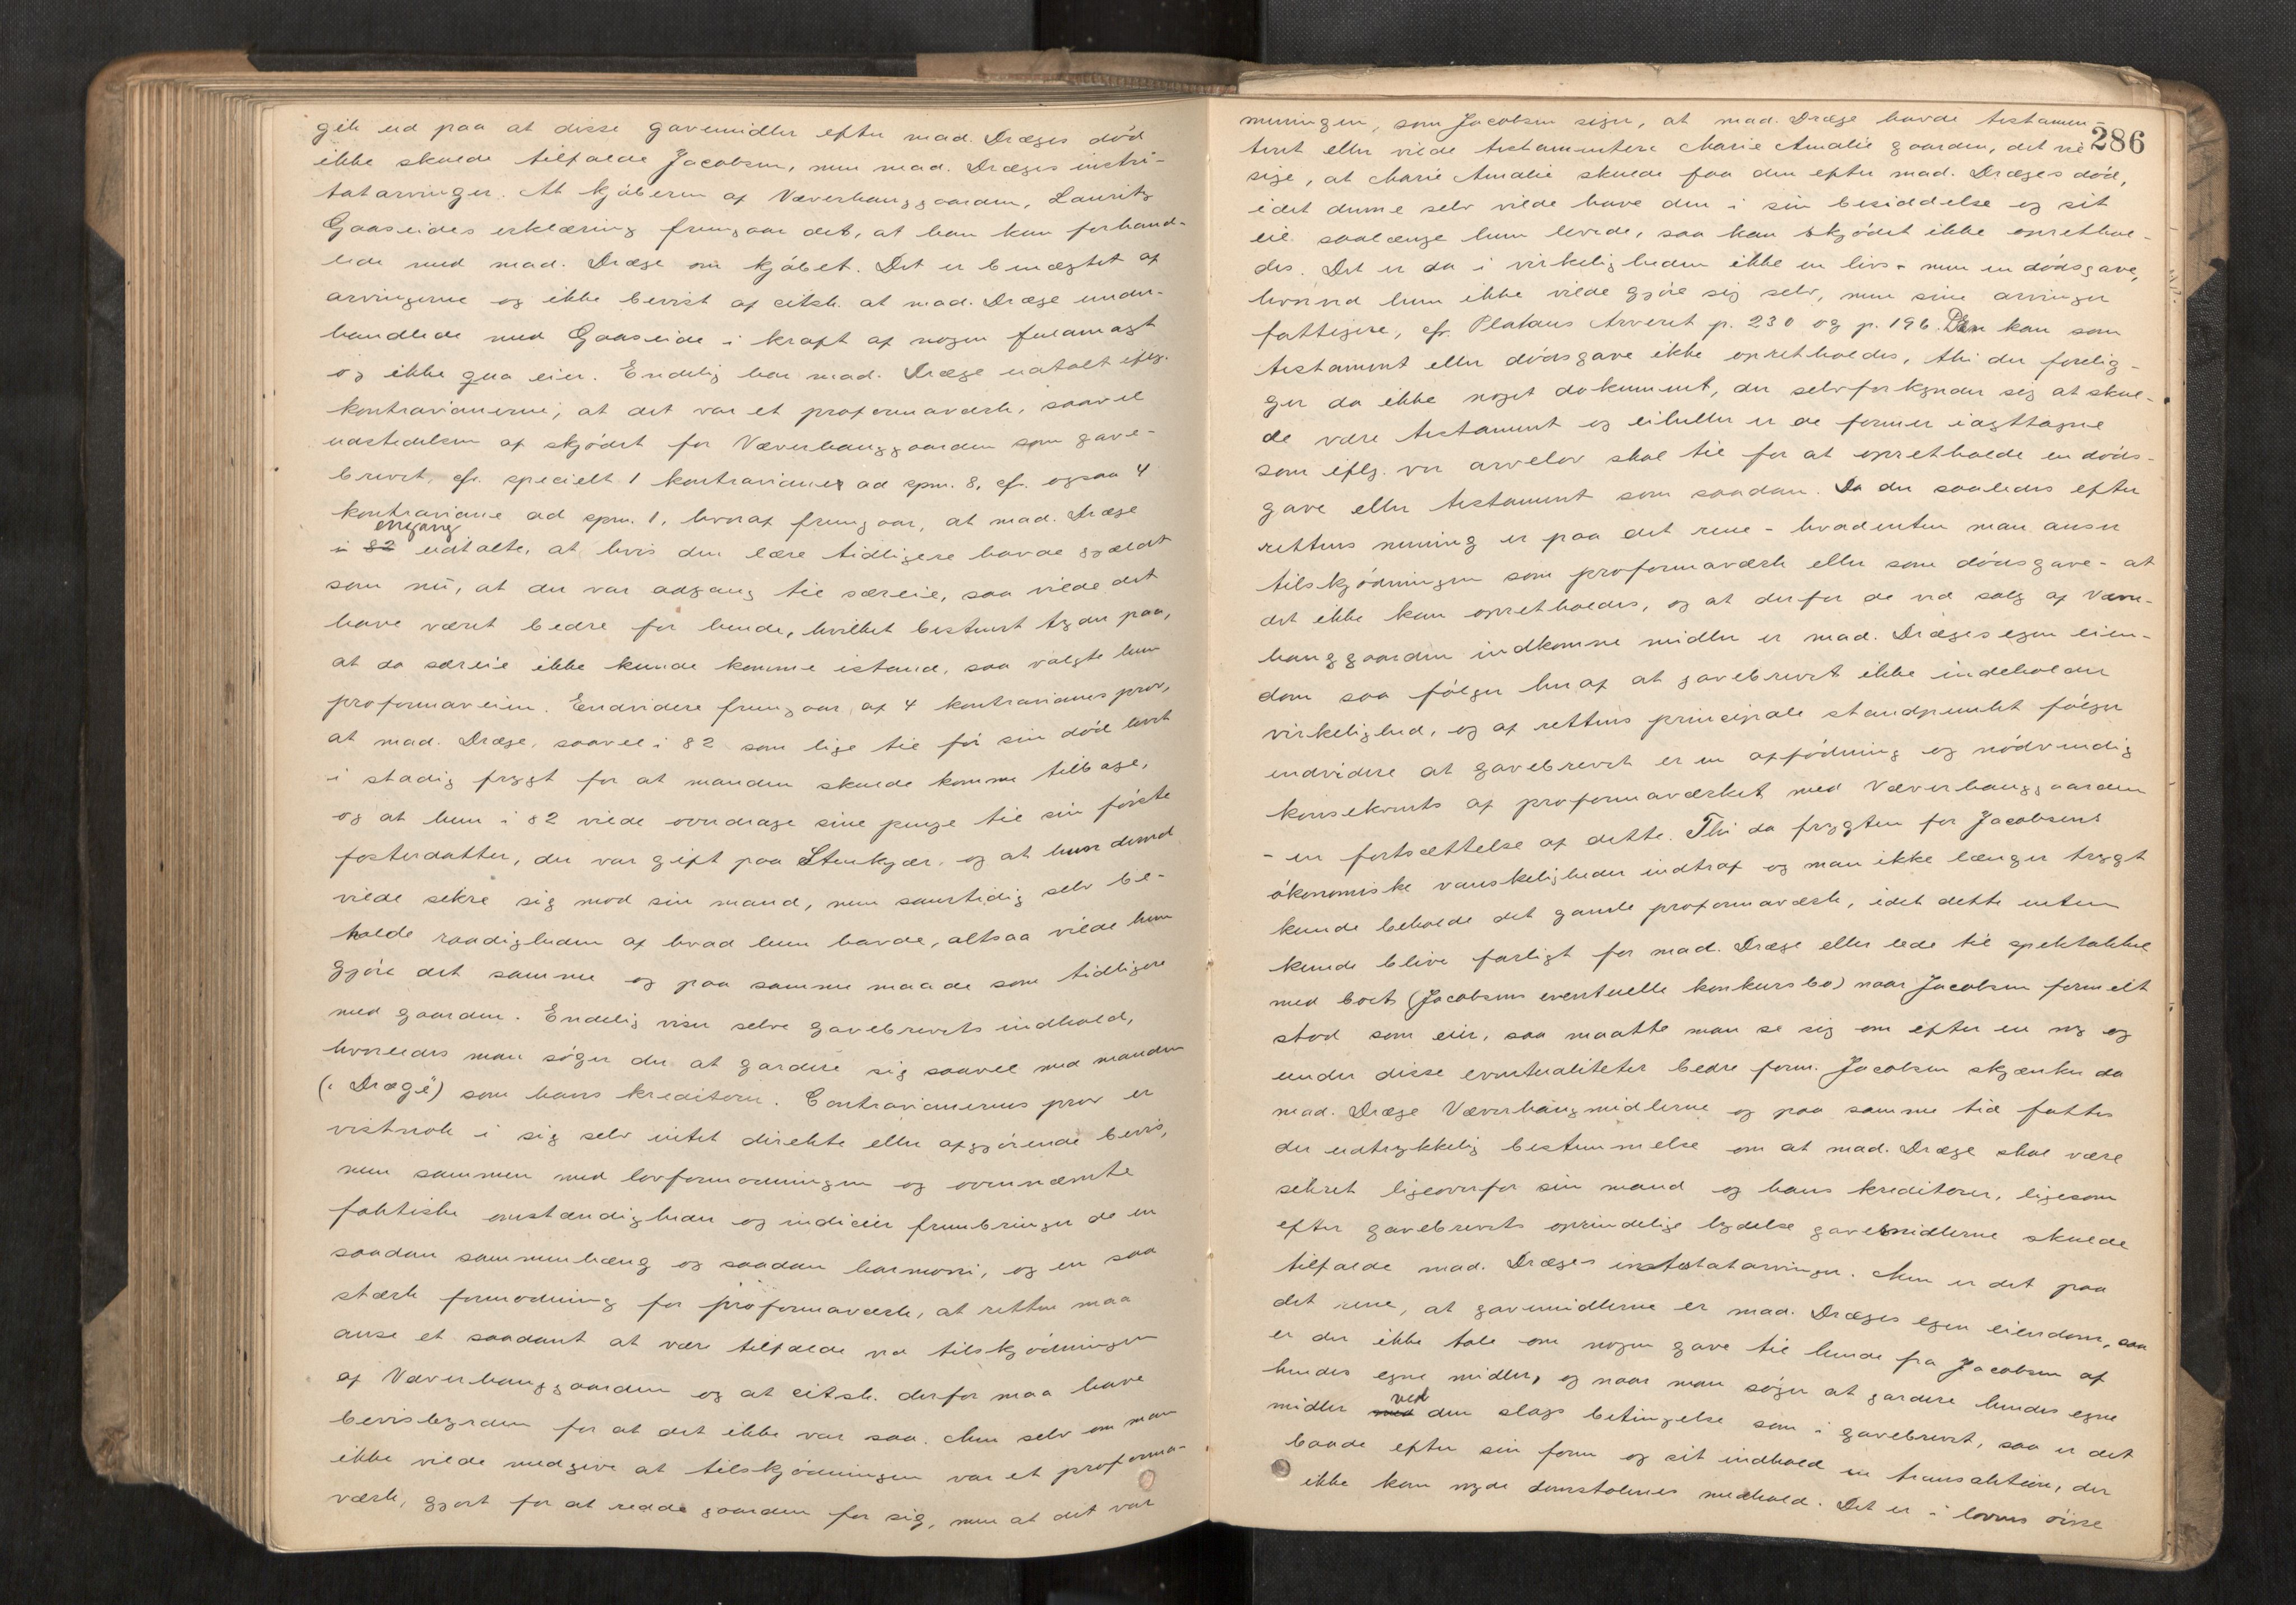 gik ud paa at disse gavemidler efter mad. Dræges död
ikke skulde tilfalde Jacobsen, men mad. Dræges insti-
tatarvinger. At kjöberen af Væverhauggaarden, Lauritz
Gaaseides erklæring fremgaar det, at han kun forhand-
lede med mad. Dræge om kjöbet. Det er benægtet af
arvingerne og ikke bevist af citsk. at mad. Dræge under-
handlede med Gaaseide i kraft af nogen fuldmagt
og ikke qua eier. Endelig har mad. Dræge udtalt iflg.
kontravianerne, at det var et proformaværk, saavel
udstedelsen af skjödet for Væverhauggaarden som gave-
brevet, cfr. specielt 1 kontravianer ad spm. 8, cfr. ogsaa 4
kontraviane ad spm. 1, hvoraf fremgaar, at mad. Dræge
engang
i 82 udtalte, at hvis den lære tidligere havde gjældt
som nu, at der var adgang til særeie, saa vilde det
have været bedre for hende, hvilket bestemt tyder paa,
at da særeie ikke kunde komme istand, saa valgte hun
proformaveien. Endvidere fremgaar af 4 kontravianes prov,
at mad. Dræge, saavel i 82 som lige til för sin död levet
i stadig frygt for at manden skulde komme tilbage,
og at hun i 82 vilde overdrage sine penge til sin förste
fosterdatter, der var gift paa Stenkjær, og at hun derved
vilde sikre sig mod sin mand, men samtidig selv be-
holde raadigheden af hvad hun havde, altsaa vilde hun
gjöre det samme og paa samme maade som tidligere
med gaarden. Endelig viser selve gavebrevets indhold,
hvorledes man söger der at gardere sig saavel mod manden
(„Dræge") som hans kreditorer. Contravianernes prov er
vistnok i sig selv intet direkte eller afgjörende bevis,
men sammen med lovformodningen og ovennævnte
faktiske omstændigheder og indicier frembringer de en
saadan sammenhæng og saadan harmoni, og en saa
stærk formodning for proformaværk, at retten maa
anse et saadant at være tilfælde ved tilskjödningen
af Væverhauggaarden og at citsk. derfor maa have
bevisbyrden for at det ikke var saa. Men selv om man
ikke vilde medgive at tilskjödningen var et proforma-
værk, gjort for at redde gaarden for sig, men at det var
286
meningen, som Jacobsen siger, at mad. Dræge havde testamen-
teret eller vilde testamentere Marie Amalie gaarden, det vil
sige, at Marie Amalie skulde faa den efter mad. Dræges död,
idet denne selv vilde have den i sin besiddelse og sit
eie saalænge hun levede, saa kan skjödet ikke oprethol-
des. Det er da i virkeligheden ikke en livs- men en dödsgave,
hvorved hun ikke vilde gjöre sig selv, men sine arvinger
fattigere, cfr. Platous Arveret p. 230 og p. 196. Den kan som
testament eller dödsgave ikke opretholdes, thi der forelig-
ger da ikke noget dokument, der selv forkynder sig at skul-
de være testament og eiheller er de former iagttagne
som iflg. vor arvelov skal til for at opretholde en döds-
gave eller testament som saadan. Da der saaledes efter
rettens mening er paa det rene - hvadenten man anser
tilskjödningen som proformaværk eller som dödsgave - at
det ikke kan opretholdes, og at derfor de ved salg af Væver-
hauggaarden indkomne midler er mad. Dræges egen eien-
dom saa fölger heraf at gavebrevet ikke indeholder
virkelighed, og af rettens principale standpunkt fölger
endvidere at gavebrevet er en affödning og nödvendig
konsekvents af proformaværket med Væverhauggaarden
- en fortsættelse af dette. Thi da frygten for Jacobsens
ökonomiske vanskeligheder indtraf og man ikke længer trygt
kunde beholde det gamle proformaværk, idet dette enten
kunde blive farligt for mad. Dræge eller lede til spektakkel
med boet (Jacobsens eventuelle konkursbo) naar Jacobsen formelt
stod som eier, saa maatte man se sig om efter en ny og
under disse eventualiteter bedre form. Jacobsen skjænker da
mad. Dræge Væverhaugmidlerne og paa samme tid fattes
der udtrykkelig bestemmelse om at mad. Dræge skal være
sikret ligeoverfor sin mand og hans kreditorer, ligesom
efter gavebrevets oprindelige lydelse gavemidlerne skulde
tilfalde mad. Dræges instestatarvinger. Men er det paa
det rene, at gavemidlerne er mad. Dræges egen eiendom, saa
er der ikke tale om nogen gave til hende fra Jacobsen af
hendes egne midler, og naar man söger at gardere hendes egne
ved
midler med den slags betingelse som i gavebrevet, saa er det
baade efter sin form og sit indhold en transaktion, der
ikke kan nyde domstolenes medhold. Det er i lovens öine